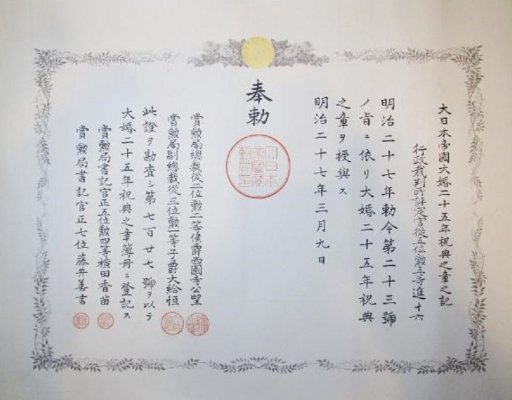 大日本帝國大婚二十五年祝典之章之記
行政裁判所評定官從五位勲五等進十六
明治二十七年勅令第二十三號
ノ旨ニ依リ大婚二十五年祝典
之章ヲ授與ス
明治二十七年三月九日
奉勅
賞勲局總裁從二位勲二等侯爵西園寺公望
賞勲局副總裁從三位勲一等子爵大給恒
此證ヲ勘査シ第七百廿七號ヲ以テ
大婚二十五年祝典之章簿册ニ登記ス
賞勲局書記官正五位勲四等横田香苗
賞勲局書記官正七位藤井善言